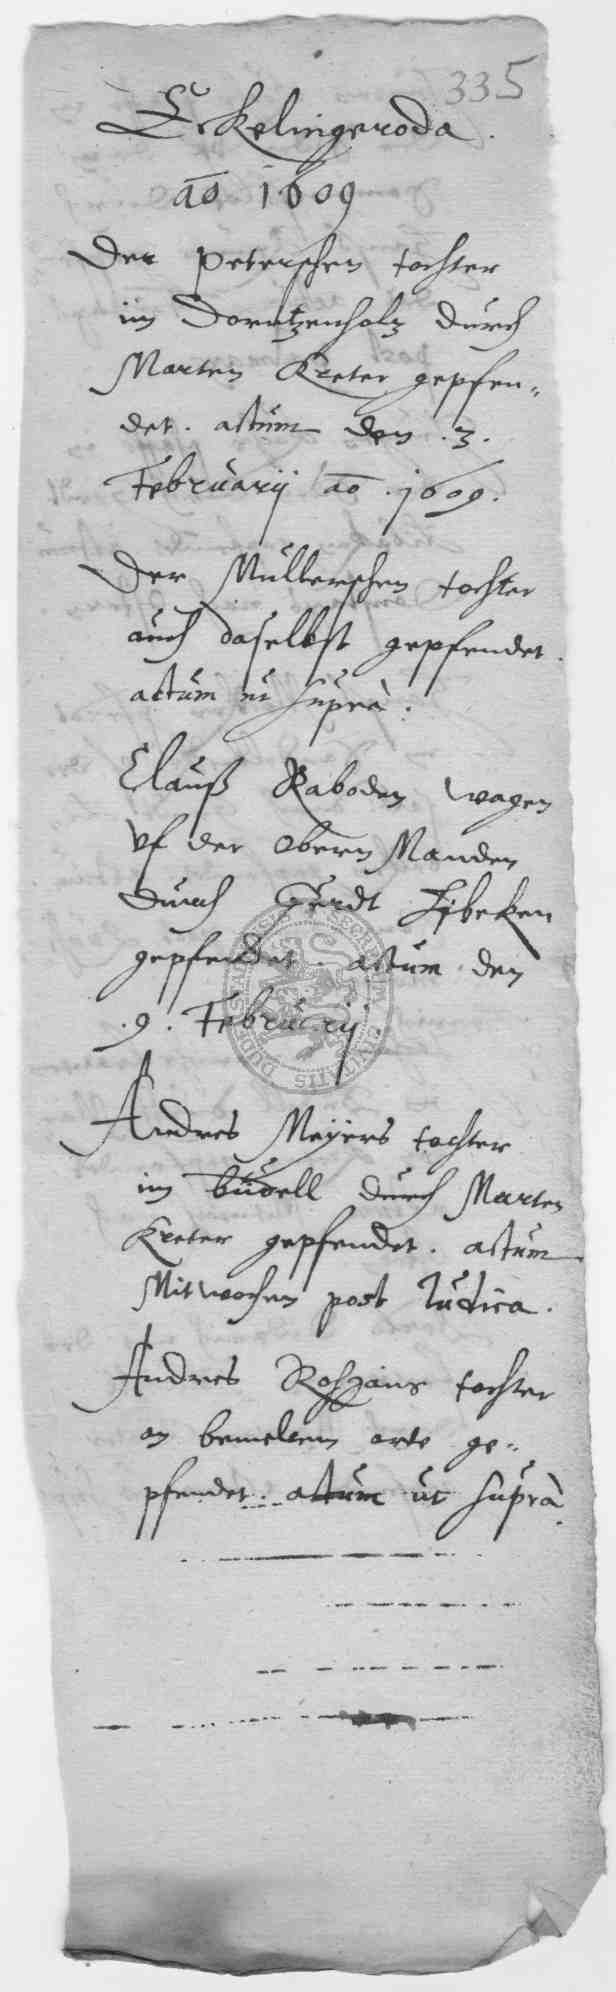 335
Eckelingeroda.
ao 1609
Der Peterschen tochter
im Dorntzenholz durch
Marten Kreter gepfen„
det. actum den .3.
Februarij ao .1609.
Der Mullerschen tochter
auch daselbst gepfendet.
actum ut supra.
Clauß Raboden wagen
Vf der Obern Manden
durch Gerdt Lybeken
gepfendet. actum den
.9. Februarij.
Andres Meyers tochter
im büdell durch Marten
Kreter gepfendet. actum
Mitwochen post Judica.
Andres tochter
an bemeltem orte ge„
pfendet. actum ut suprà
SECRETUM CIVITATIS DUDERSTADENSIS